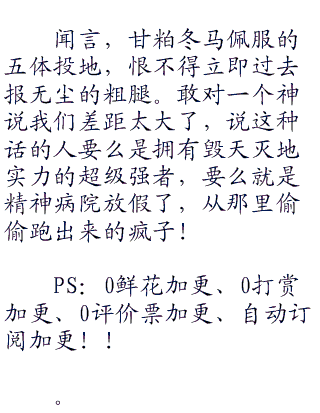 闻言，甘粕冬马佩服的
五体投地，恨不得立即过去
报无尘的粗腿。敢对一个神
说我们差距太大了，说这种
话的人要么是拥有毁天灭地
实力的超级强者，要么就是
精神病院放假了，从那里偷
偷跑出来的疯子！
PS：0鲜花加更、0打赏
加更、0评价票加更、自动订
阅加更！！
。